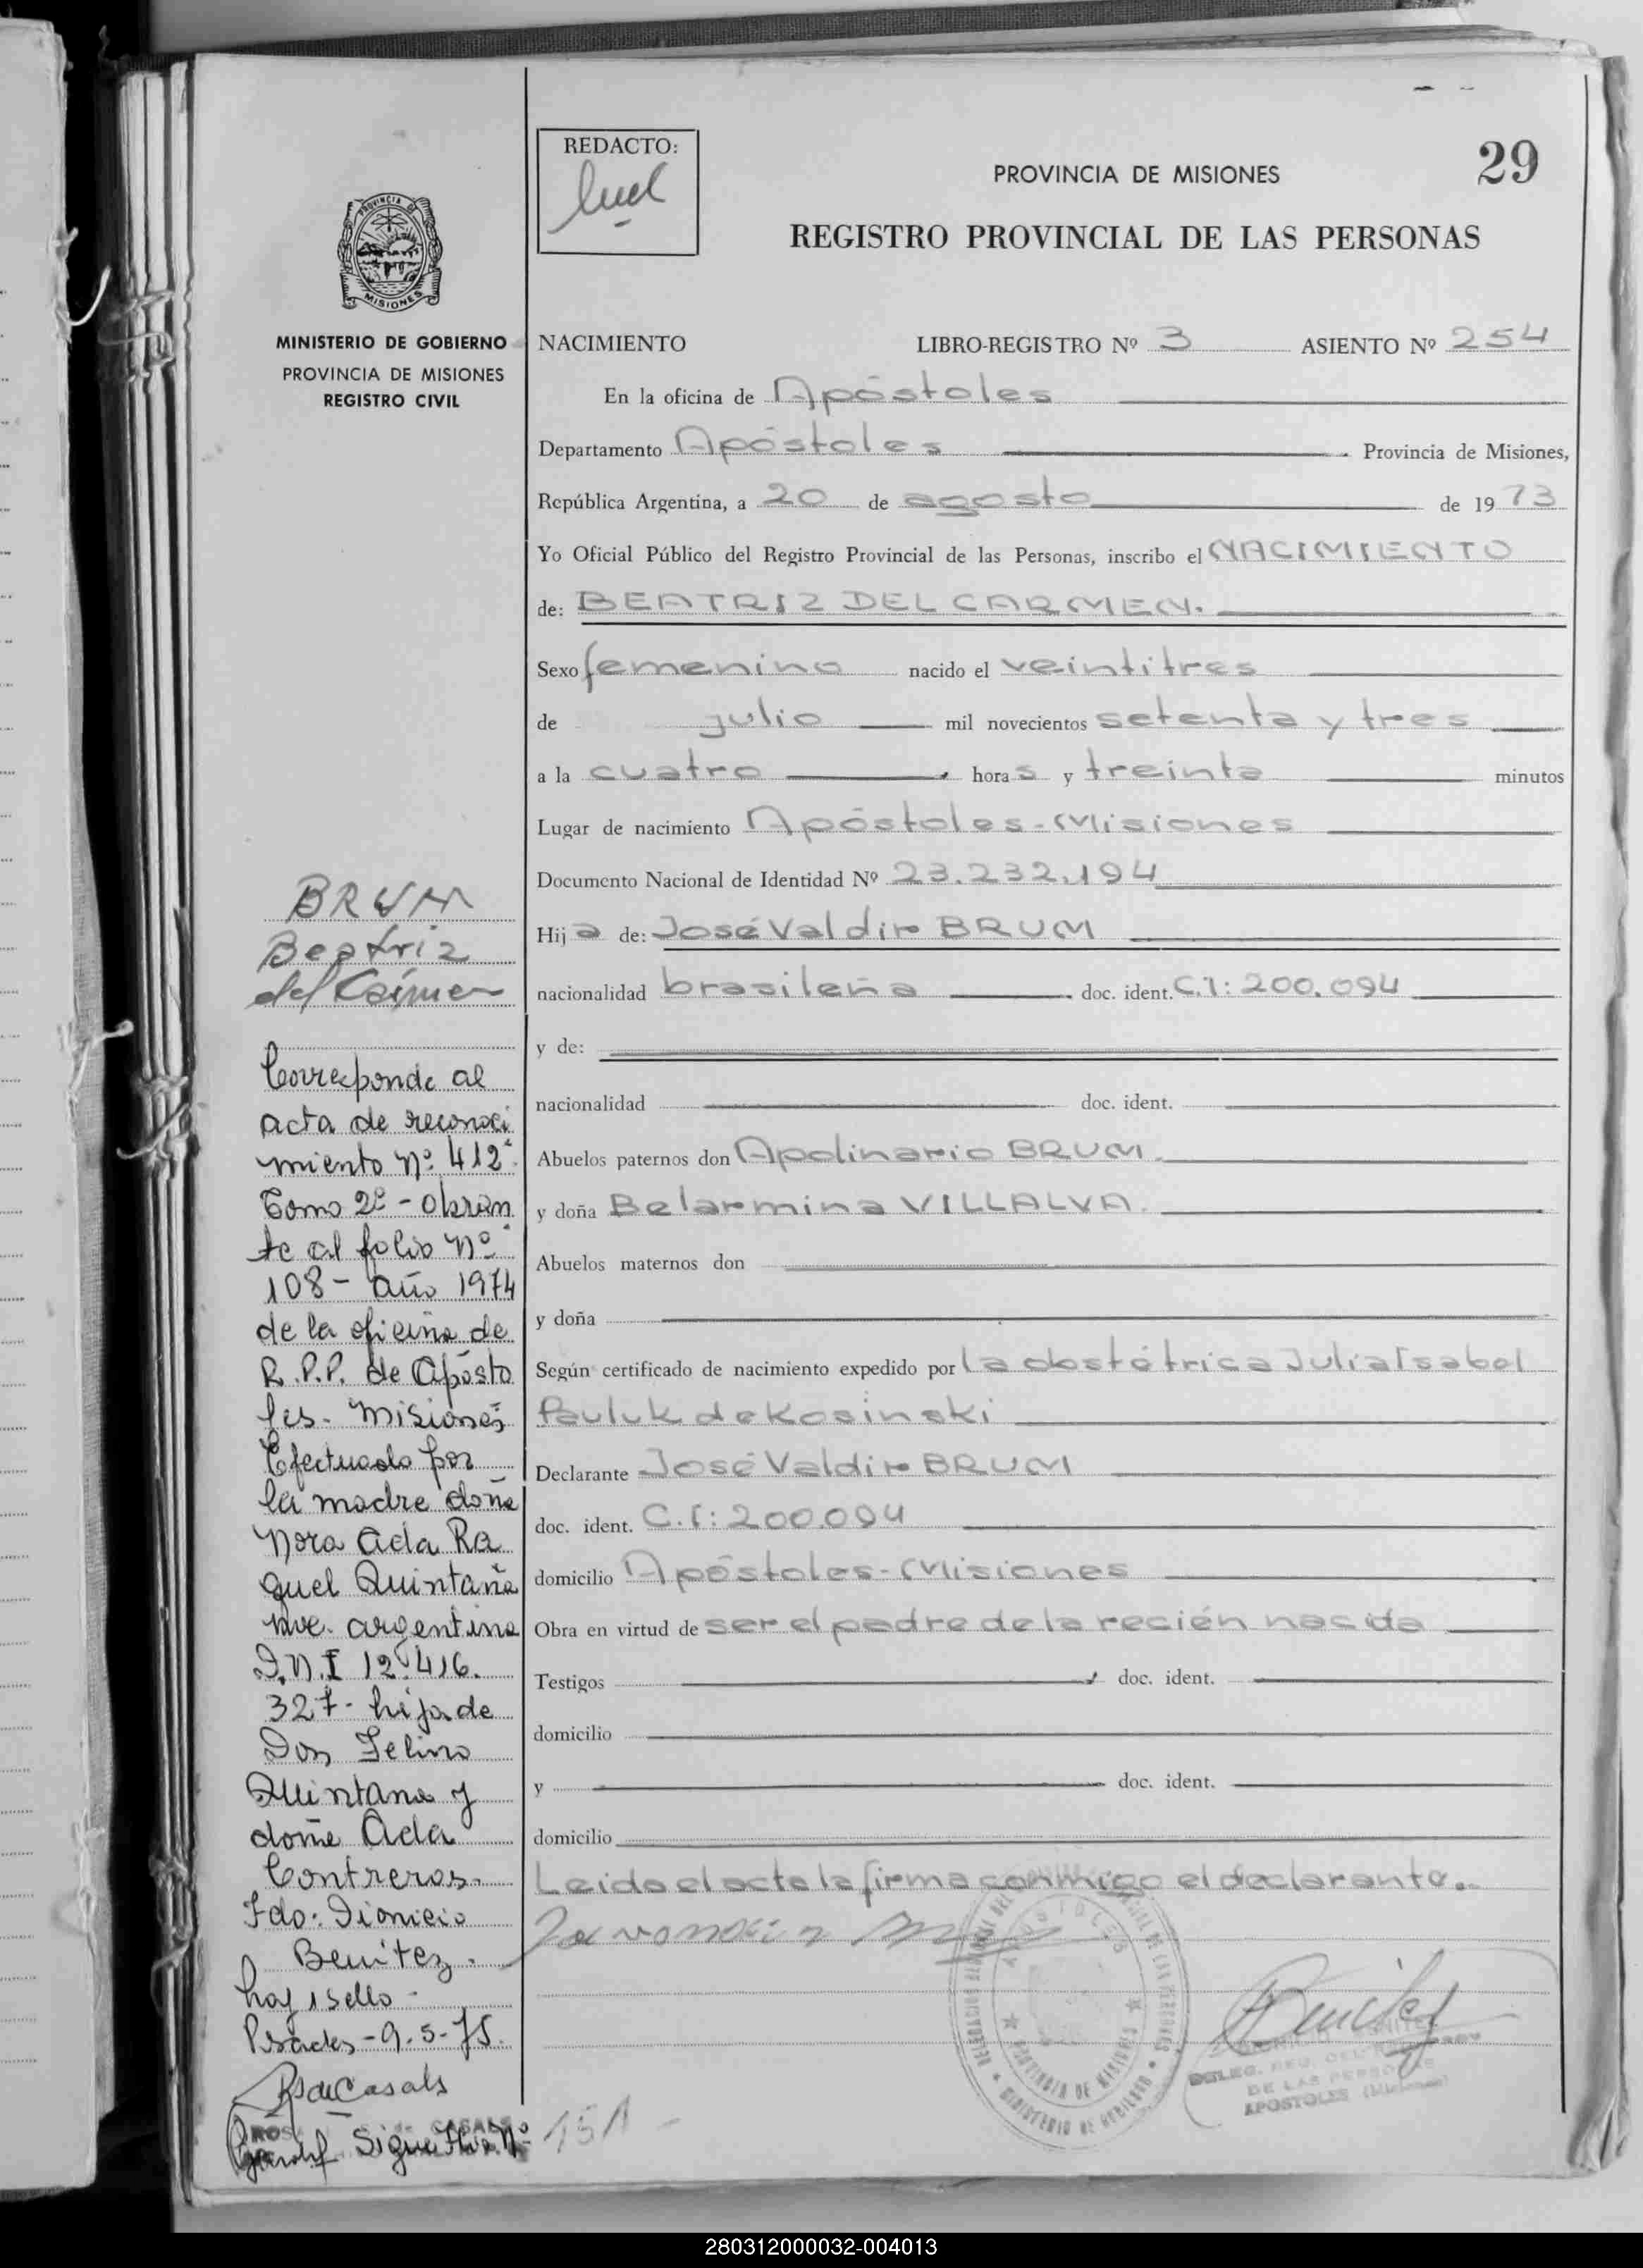 REDACTO:
PROVINCIA DE MISIONES
29
REGISTRO PROVINCIAL DE LAS PERSONAS
PROVINCIA DE
MISIONES
MINISTERIO DE GOBIERNO
PROVINCIA DE MISIONES
REGISTRO CIVIL
NACIMIENTO LIBRO-REGISTRO Nº 3 ASIENTO Nº 254
En la oficina de Apóstoles
Departamento Apóstoles Provincia de Misiones,
República Argentina, a 20 de agosto de 1973
Yo Oficial Público del Registro Provincial de las Personas, inscribo el NACIMIENTO
de: BEATRIZ DEL CARMEN.
Sexo femenino nacido el veintitres
de julio mil novecientos setenta y tres
a la cuatro horas y treinta minutos
Lugar de nacimiento Apóstoles-Misiones
Documento Nacional de Identidad Nº 23.232.194
Hija de: José Valdir BRUM
nacionalidad brasileña doc. ident. C.I: 200.094
y de:
nacionalidad doc. ident.
Abuelos paternos don Apolinario BRUM.
y doña Belarmina VILLALVA.
Abuelos maternos don
y doña
Según certificado de nacimiento expedido por la obstétrica Julia Isabel
Pauluk de Kosinski
Declarante José Valdir BRUM
doc. ident. C.I: 200.094
domicilio Apóstoles-Misiones
Obra en virtud de ser el padre de la recién nacida
Testigos doc. ident.
domicilio
y doc. ident.
domicilio
Leida el acta la firma conmigo el declarante.
BRUM
Beatriz
del Carmen
Corresponde al
acta de reconoci
miento Nº 412
Tomo 2º - obran
te al folio Nº
108 - año 1974
de la oficina de
R.P.P. de Apósto
les - Misiones
Efectuado por
la madre doña
Nora Ada Ra
quel Quintana
nac. argentina
D.N.I 12.416.
327 - hija de
Don Felino
Quintana y
doña Ada
Contreras.
Fdo: Dionicio
Benitez.
hay 1 sello -
Psadas - 9.5.75.
CASALS
Sigue Nº 151 -
PROVINCIA DE MISIONES
MINISTERIO DE GOBIERNO
APOSTOLES
DELEG. REG. DEL
DE LAS PERSONAS
APOSTOLES (Misiones)
280312000032-004013